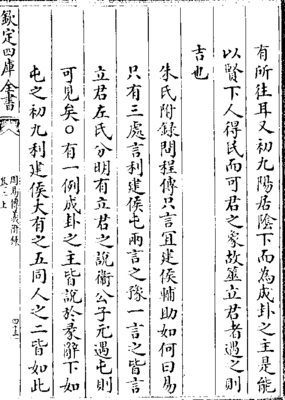 有所往耳又初九陽居陰下而為成卦之主是能
以賢下人得民而可君之象故筮立君者遇之則
吉也
朱氏附錄問程傳只言宜建侯輔助如何曰易
只有三處言利建侯屯兩言之豫一言之皆言
立君左氏分明有立君之說衛公子元遇屯則
可見矣○有一例成卦之主皆說於彖辭下如
屯之初九利建侯大有之五同人之二皆如此
欽定四庫全書
周易傳義附錄
卷二上